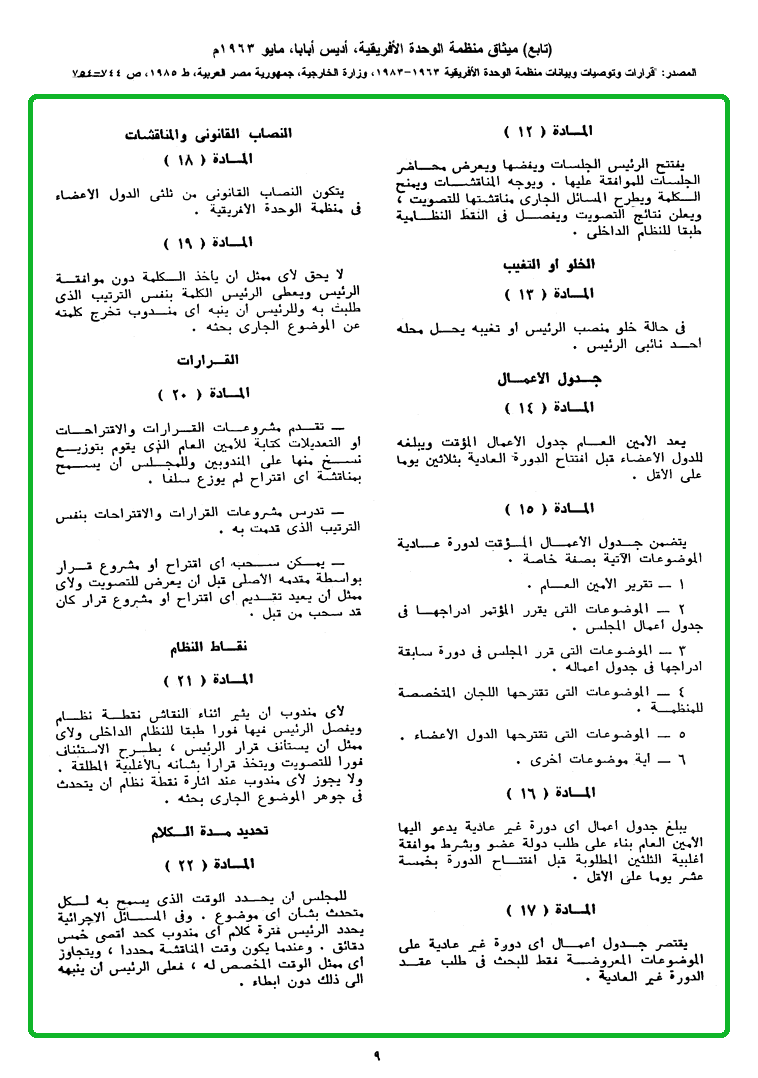 (تابع) ميثاق منظمة الوحدة الأفريقية، أديس أبابا، مايو ١٩٦٣م
المصدر: "قرارات وتوصيات وبيانات منظمة الوحدة الأفريقية ١٩٦٣-١٩٨٣، وزارة الخارجية، جمهورية مصر العربية، ط ١٩٨٥، ص ٧٤٤-٧٥٤
المادة ( ١٢ )
يفتتح الرئيس الجلسات ويفضها ويعرض محاضر
الجلسات للموافقة عليها . ويوجه المناقشات ويمنح
الكلمة ويطرح المسائل الجارى مناقشتها للتصويت ،
ويعلن نتائج التصويت ويفصل فى النقط النظامية
طبقا للنظام الداخلى .
الخلو او التغيب
المادة ( ١٣ )
فى حالة خلو منصب الرئيس او تغيبه يحل محله
احد نائبى الرئيس .
جدول الاعمال
المادة ( ١٤ )
يعد الأمين العام جدول الاعمال المؤقت ويبلغه
للدول الاعضاء قبل افتتاح الدورة العادية بثلاثين يوما
على الاقل .
المادة ( ١٥ )
يتضمن جدول الاعمال المؤقت لدورة عادية
الموضوعات الآتية بصفة خاصة .
١ — تقرير الأمين العام .
٢ — الموضوعات التى يقرر المؤتمر ادراجها فى
جدول أعمال المجلس .
٣ — الموضوعات التى قرر المجلس فى دورة سابقة
ادراجها فى جدول اعماله .
٤ — الموضوعات التى تقترحها اللجان المتخصصة
للمنظمة .
٥ — الموضوعات التى تقترحها الدول الاعضاء .
٦ — اية موضوعات اخرى .
المادة ( ١٦ )
يبلغ جدول اعمال اى دورة غير عادية يدعو اليها
الأمين العام بناء على طلب دولة عضو وبشرط موافقة
اغلبية الثلثين المطلوبة قبل افتتاح الدورة بخمسة
عشر يوما على الأقل .
المادة ( ١٧ )
يقتصر جدول اعمال اى دورة غير عادية على
الموضوعات المعروضة فقط للبحث فى طلب عقد
الدورة غير العادية .
النصاب القانونى والمناقشات
المادة ( ١٨ )
يتكون النصاب القانونى من ثلثى الدول الاعضاء
فى منظمة الوحدة الأفريقية .
المادة ( ١٩ )
لا يحق لاى ممثل ان يأخذ الكلمة دون موافقة
الرئيس ويعطى الرئيس الكلمة بنفس الترتيب الذى
طلبت به وللرئيس ان ينبه اى مندوب تخرج كلمته
عن الموضوع الجارى بحثه .
القرارات
المادة ( ٢٠ )
— تقدم مشروعات القرارات والاقتراحات
او التعديلات كتابة للأمين العام الذى يقوم بتوزيع
نسخ منها على المندوبين وللمجلس ان يسمح
بمناقشة اى اقتراح لم يوزع سلفا .
— تدرس مشروعات القرارات والاقتراحات بنفس
الترتيب الذى قدمت به .
— يمكن سحب اى اقتراح او مشروع قرار
بواسطة مقدمه الاصلى قبل ان يعرض للتصويت ولاى
ممثل ان يعيد تقديم اى اقتراح او مشروع قرار كان
قد سحب من قبل .
نقاط النظام
المادة ( ٢١ )
لاى مندوب ان يثير اثناء النقاش نقطة نظام
ويفصل الرئيس فيها فورا طبقا للنظام الداخلى ولاى
ممثل ان يستأنف قرار الرئيس ، يطرح الاستئناف
فورا للتصويت ويتخذ قرارا بشانه بالأغلبية المطلقة .
ولا يجوز لاى مندوب عند اثارة نقطة نظام ان يتحدث
فى جوهر الموضوع الجارى بحثه .
تحديد مدة الكلام
المادة ( ٢٢ )
للمجلس ان يحدد الوقت الذى يسمح به لكل
متحدث بشان اى موضوع . وفى المسائل الاجرائية
يحدد الرئيس فترة كلام اى مندوب كحد اقصى خمس
دقائق . وعندما يكون وقت المناقشة محددا ، ويتجاوز
اى ممثل الوقت المخصص له ، فعلى الرئيس ان ينبهه
الى ذلك دون ابطاء .
٩